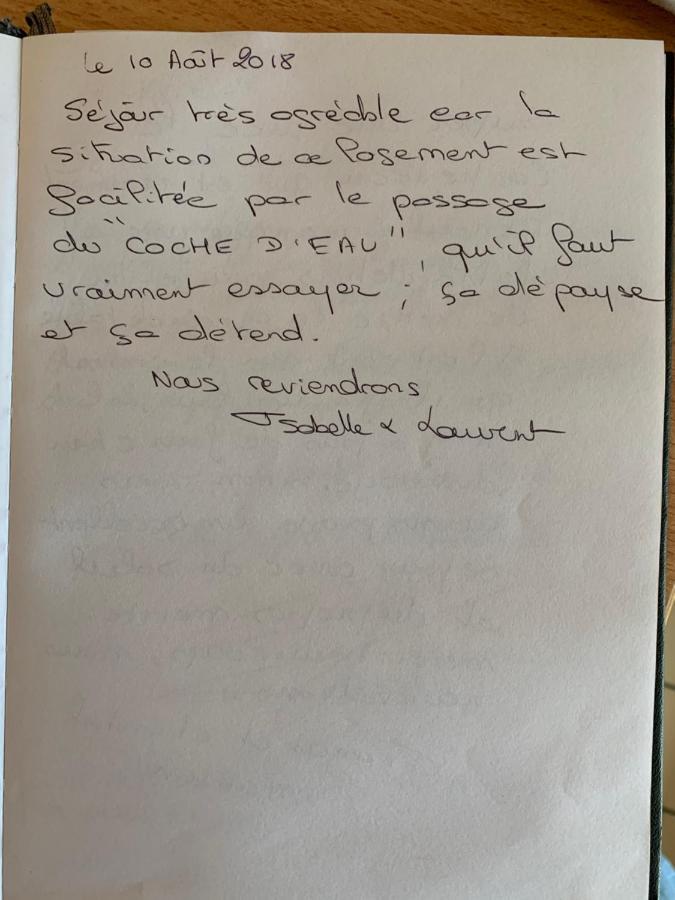 le 10 Août 2018
Séjour très agréable car la
situation de ce logement est
facilitée par le passage
du "COCHE D'EAU", qu'il faut
vraiment essayer ; ça dépayse
et ça détend.
Nous reviendrons
Isabelle & Laurent